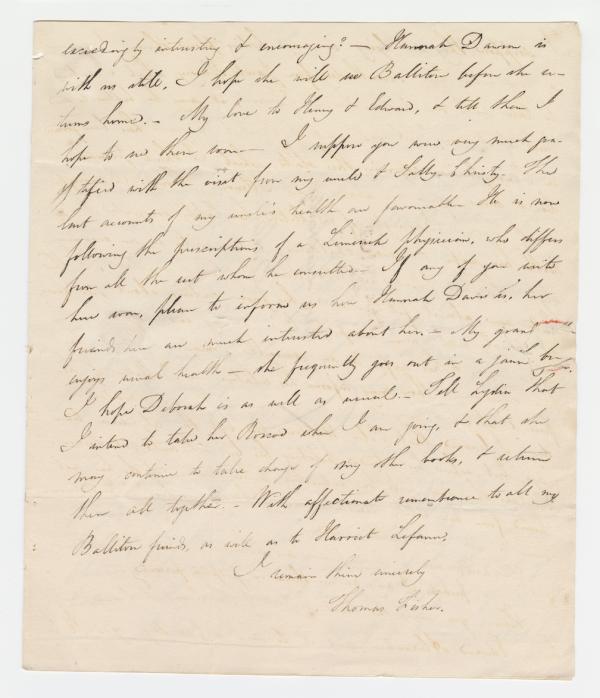 exceedingly interesting & encouraging? — Hannah Dawson is
with us still, I hope she will see Balliton before she re-
turns home. – My love to Henry & Edward, & tell them I
hope to see them soon — I suppose you were very much gra-
tified with the visit from my uncle & Sally Christy. The
last accounts of my uncle's health are favourable – He is now
following the prescriptions of a Limerick physician, who differs
from all the rest whom he consulted — If any of you write
here soon, please to inform us how Hannah Davis is, her
friends here are much interested about her. – My grand
enjoys usual health – she frequently goes out in a
I hope Deborah is as well as usual. – Tell Lydia that
I intend to take her Roscoe when I am going, & that she
may continue to take charge of my other books, & return
them all together. – With affectionate remembrance to all my
Balliton friends, as well as to Harriet Lefanu,
I remain thine sincerely
Thomas Fisher.